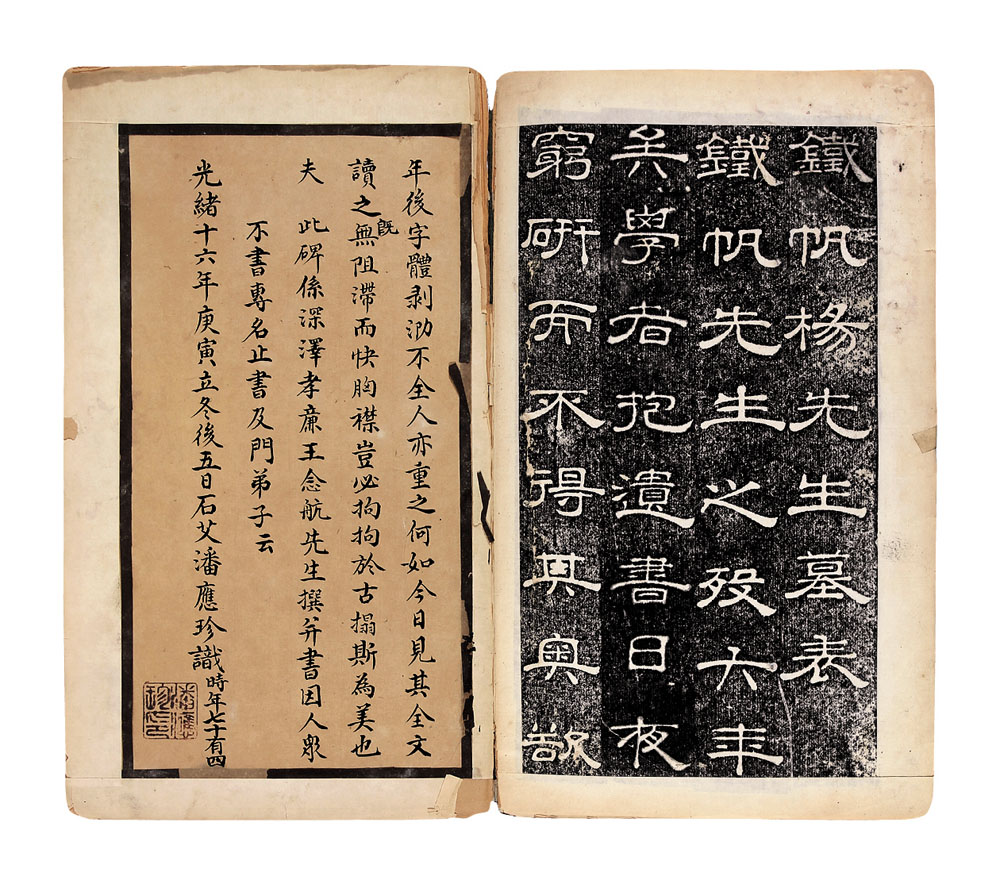 鐵帆楊先生墓表
鐵帆先生之歿六年
矣學者抱遺書日夜
窮研而不得其奧
年後字體剥泐不全人亦重之何如今日見其全文
讀之既無阻滯而快胸襟豈必拘拘於古搨斯為美也
夫 此碑係深澤孝廉王念航先生撰并書因人眾
不書專名止書及門弟子云
光緒十六年庚寅立冬後五日石艾潘應珍識時年七十有四
潘應珍印